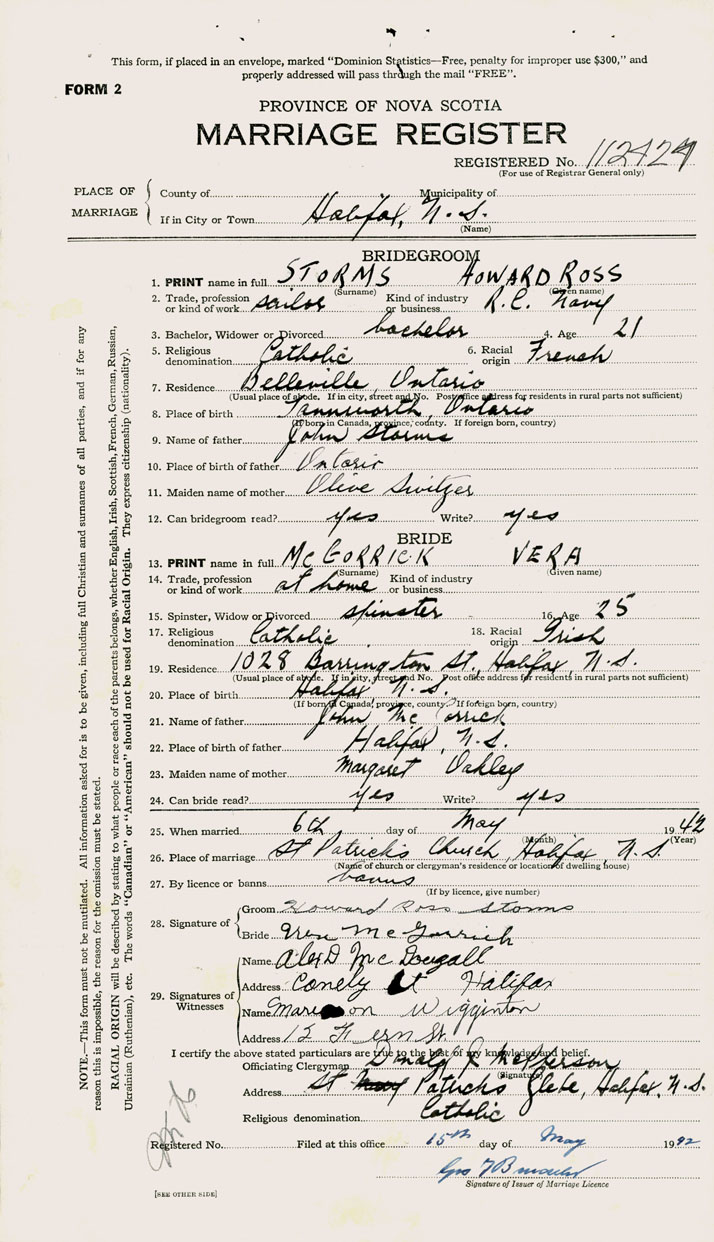 This form, if placed in an envelope, marked "Dominion Statistics—Free, penalty for improper use $300," and
properly addressed will pass through the mail "FREE".
FORM 2
PROVINCE OF NOVA SCOTIA
MARRIAGE REGISTER
REGISTERED No. 112424
(For use of Registrar General only)
PLACE OF MARRIAGE
County of Municipality of
If in City or Town Halifax, N.S.
(Name)
BRIDEGROOM
1. PRINT name in full STORMS HOWARD ROSS
(Surname) (Given name)
2. Trade, profession or kind of work sailor Kind of industry or business R.C. Navy
3. Bachelor, Widower or Divorced bachelor 4. Age 21
5. Religious denomination Catholic 6. Racial origin French
7. Residence Belleville, Ontario
(Usual place of abode. If in city, street and No. Post office address for residents in rural parts not sufficient)
8. Place of birth Tammworth, Ontario
(If born in Canada, province, county. If foreign born, country)
9. Name of father John Storms
10. Place of birth of father Ontario
11. Maiden name of mother Olive Switzer
12. Can bridegroom read? yes Write? yes
BRIDE
13. PRINT name in full McGORRICK VERA
(Surname) (Given name)
14. Trade, profession or kind of work at home Kind of industry or business
15. Spinster, Widow or Divorced spinster 16. Age 25
17. Religious denomination Catholic 18. Racial origin Irish
19. Residence 1028 Barrington St., Halifax N.S.
(Usual place of abode. If in city, street and No. Post office address for residents in rural parts not sufficient)
20. Place of birth Halifax, N.S.
(If born in Canada, province, county. If foreign born, country)
21. Name of father John McGorrick
22. Place of birth of father Halifax, N.S.
23. Maiden name of mother Margaret Oakley
24. Can bride read? yes Write? yes
25. When married 6th day of May 1942
(Month) (Year)
26. Place of marriage St Patrick's Church, Halifax, N.S.
(Name of church or clergyman's residence or location of dwelling house)
27. By licence or banns banns
(If by licence, give number)
28. Signature of
Groom Howard Ross Storms
Bride Vera McGorrick
29. Signatures of Witnesses
Name Alex D McDougall
Address St Halifax
Name Wigginton
Address Fern St.
I certify the above stated particulars are true to the best of my knowledge and belief.
Officiating Clergyman Donald J. McPherson
(Signature)
Address St Patricks Glebe, Halifax, N.S.
Religious denomination Catholic
Registered No. Filed at this office 15th day of May 1942
Signature of Issuer of Marriage Licence
[SEE OTHER SIDE]
NOTE.—This form must not be mutilated. All information asked for is to be given, including full Christian and surnames of all parties, and if for any
reason this is impossible, the reason for the omission must be stated.
RACIAL ORIGIN will be described by stating to what people or race each of the parents belongs, whether English, Irish, Scottish, French, German, Russian,
Ukrainian (Ruthenian), etc. The words "Canadian" or "American" should not be used for Racial Origin. They express citizenship (nationality).